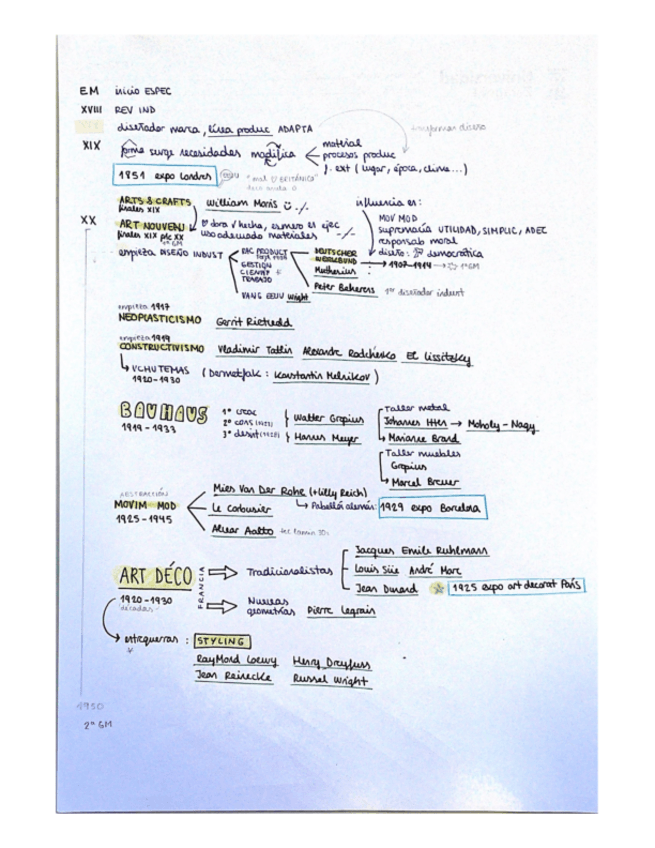 EM inicio ESPEC
XVIII REV IND
diseñador marca, línea produc ADAPTA
transforma diseño
XIX forma surge necesidades modifica
material
procesos produc
f. ext (lugar, época, clima...)
1851 expo Londres
ARTS & CRAFTS William Morris
finales XIX
influencia en:
MOV MOD
supremacía UTILIDAD, SIMPLIC, ADEC
responsab moral
diseño: democrática
XX
ART NOUVEAU
finales XIX ppio XX
uso adecuado materiales
empieza DISEÑO INDUST
RAC PRODUCT
GESTIÓN
CIENTIF
TRABAJO
DEUTSCHER
WERKBUND
1907-1914 → 1ª GM
Muthesius
Peter Beherens 1er diseñador indust
VANG EEUU Wright
empieza 1917
NEOPLASTICISMO Gerrit Rietvedd
empieza 1919
CONSTRUCTIVISMO Vladimir Tatlin Alexandre Rodchesko El Lissitzky
VCHUTEMAS
1920-1930
Konstantin Melnikov)
BAUHAUS
1919-1933
Walter Gropius
Hannes Meyer
Taller metal
Johannes Itten → Moholy-Nagy
Marianne Brand
Taller muebles
Gropius
Marcel Breuer
ABSTRACCIÓN
MOVIM MOD
1925-1945
Mies Van Der Rohe (+Lilly Reich)
Pabellón alemán: 1929 expo Barcelona
Le Corbousier
Alvar Aalto
ART DÉCO
1920-1930
décadas
FRANCIA
Tradicionalistas
Jacques Emile Ruhlmann
Louis Süe André Marc
Jean Dunand 1925 expo art decorat París
Nuevas
geometrías Pierre Legrain
entreguerras: STYLING
RayMond Loewy Henry Dreyfuss
Jean Reinecke Russel Wright
1950
2ª GM